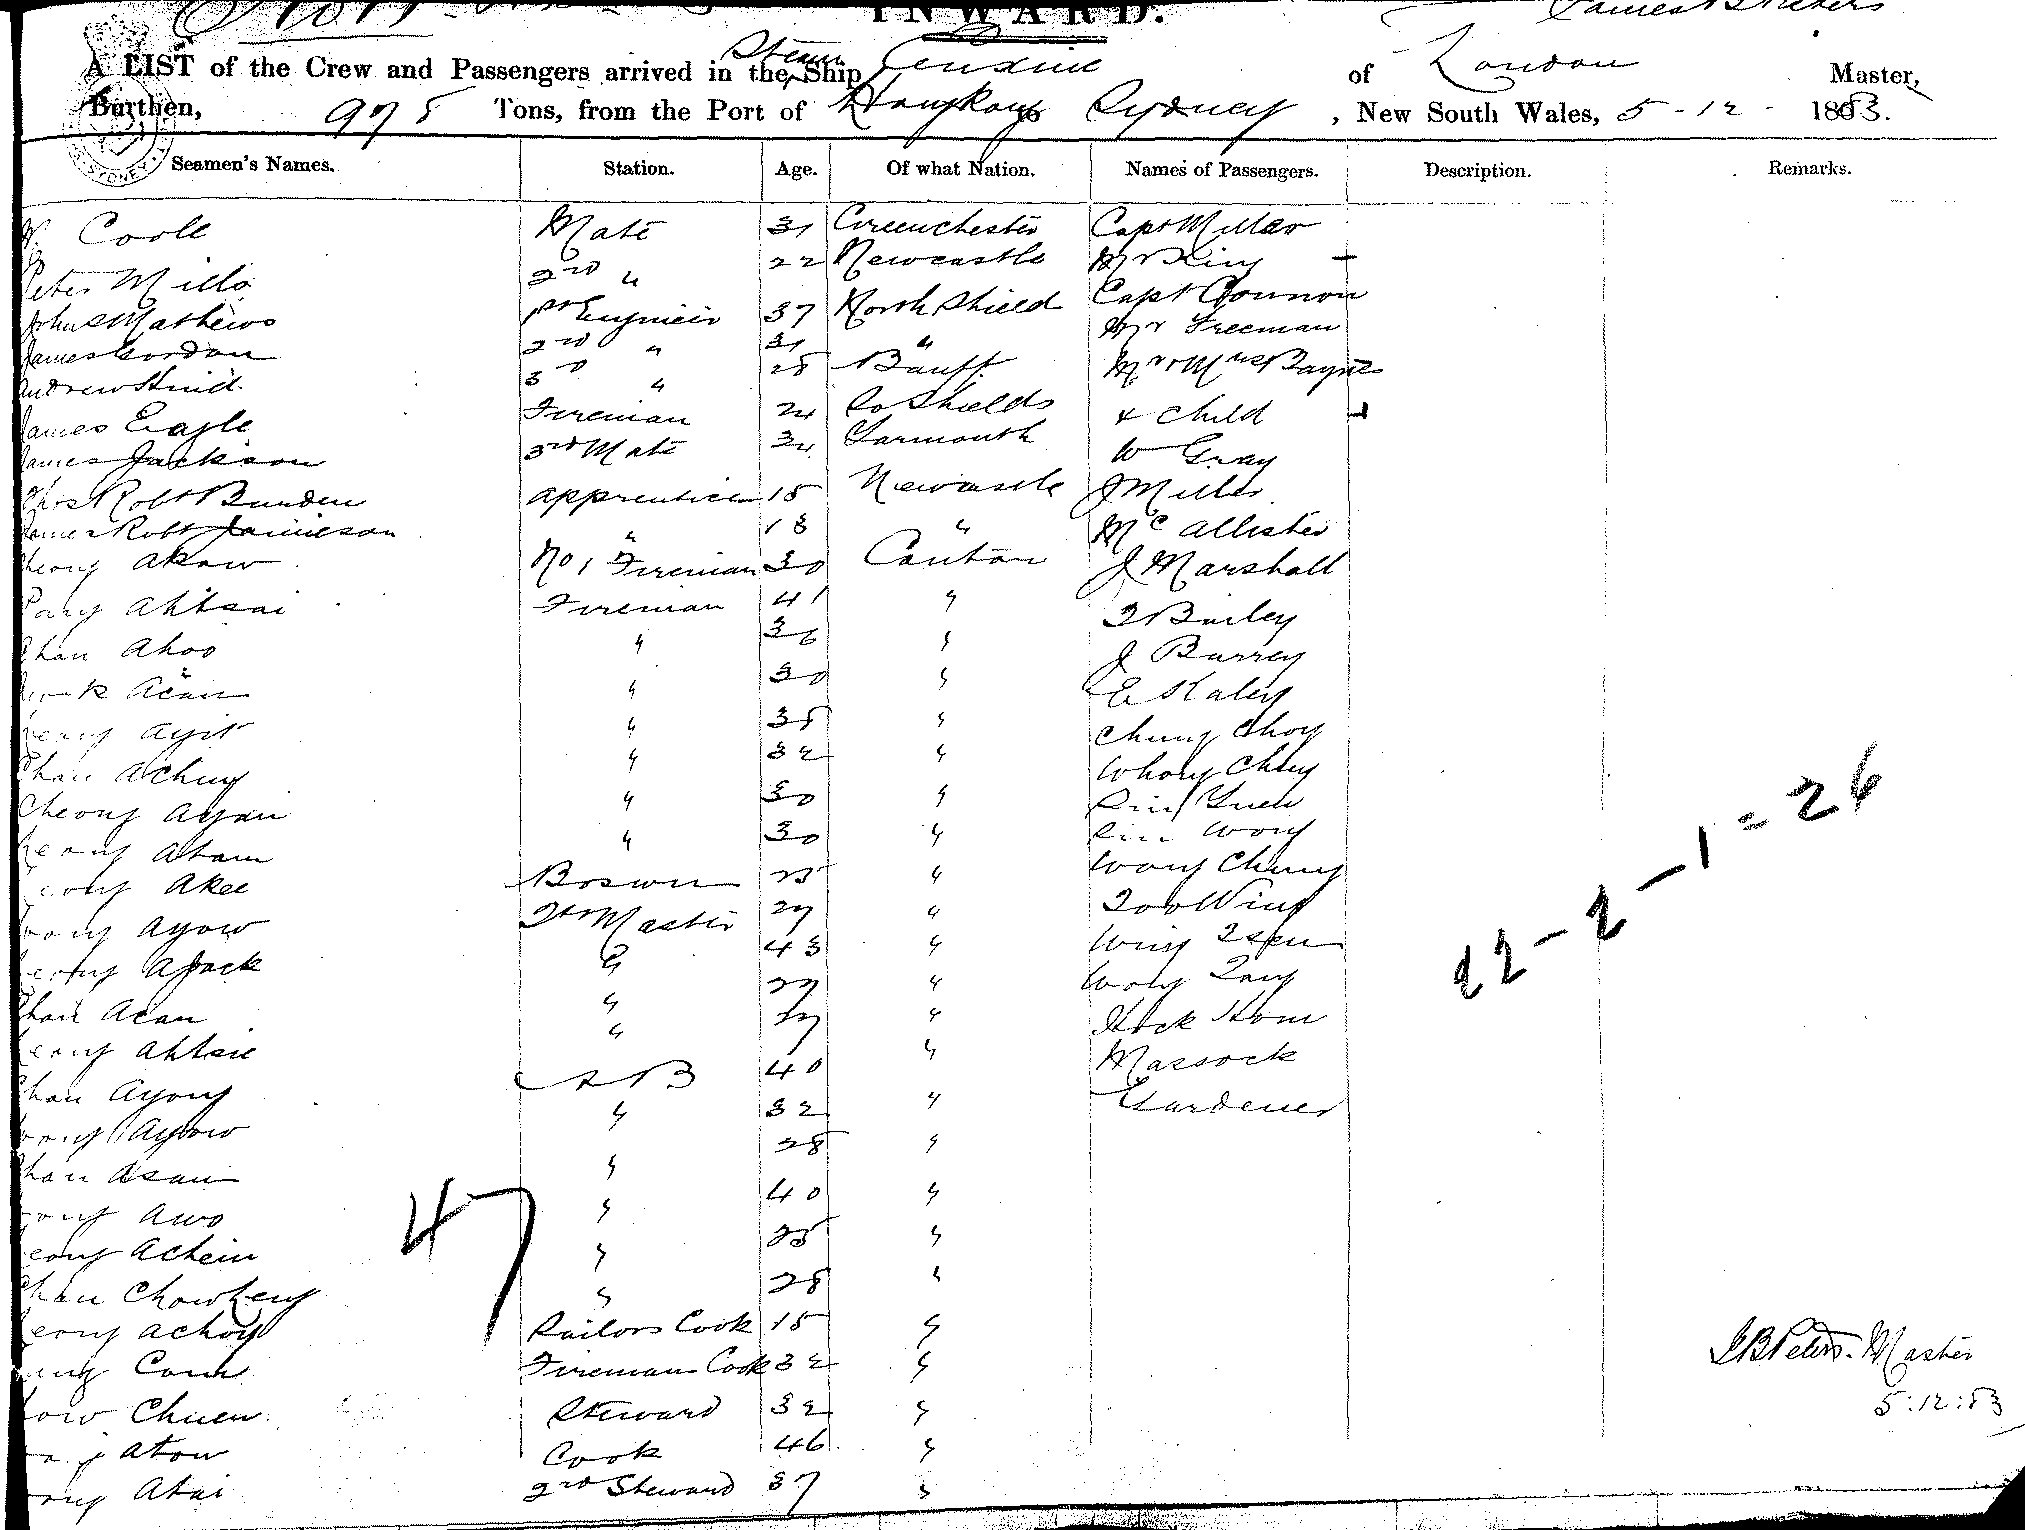 INWARD.
James B Peters
A LIST of the Crew and Passengers arrived in the Steam Ship of London Master,
Burthen, 975 Tons, from the Port of Hongkong to Sydney, New South Wales, 5-12-1883.
Seamen's Names. Station. Age. Of what Nation. Names of Passengers. Description. Remarks.
Coole Mate 31 Capt Miller
Peter Mills 2nd " 22 Newcastle Mr King
John Mathews 1st Engineer 37 North Shield Capt Connon
James Gordon 2nd " 31 " Mr Freeman
Andrew 3d " 28 Banff Mr & Mrs Baynes
James Eagle Fireman 24 So Shields & Child
James Jackson 3rd Mate 34 Yarmouth W Gray
Thos Robt Bunden apprentice 18 Newcastle J Miller
James Robt Jamieson " 18 " McAllister
Cheong Akow No 1 Fireman 30 Canton J Marshall
Pang Ahtsai Fireman 41 " T Bailey
Chan Ahoo " 36 " J Barrey
Acan " 30 " E Haley
" 35 " Chung Choy
Chan Achuy " 32 " Whong Ching
Cheong Ayan " 30 " Sing Yuen
Cheong Atam " 30 " Wong
Cheong Akee Boswn 25 " Wong Chung
Ayow Qtr Master 27 " Too Wing
Cheong Ajack " 43 " Wing
Chan Acan " 27 " Wong Tang
Cheong Ahtsie " 37 " Hock Hom
Chan Ayong AB 40 " Massock
Ayow " 32 " Gardener
Chan Asam " 28 "
Awo " 40 "
Cheong Achein " 25 "
Chan Chowkeng " 28 "
Cheong Achoy Sailors Cook 18 "
Cong Fireman Cook 32 "
Chuen Steward 32 "
Atow Cook 46 "
Atai 2nd Steward 37 "
47
22 - 2 - 1 = 26
J B Peters. Master
5:12:83